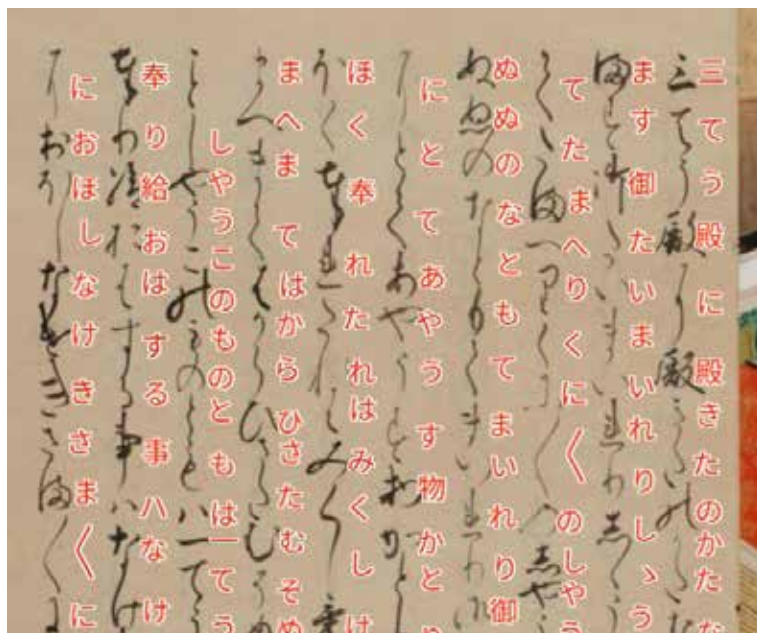 三てう殿に殿きたのかたな
ます御たいまいれりしゝう
てたまへりくに〱のしやう
ぬぬのなともてまいれり御
にとてあやうす物かと
ほく奉れたれはみくしけ
まへまてはからひさたむそぬ
しやうこのものともは一てう
奉り給おはする事ハなけ
におほしなけきさま〱に